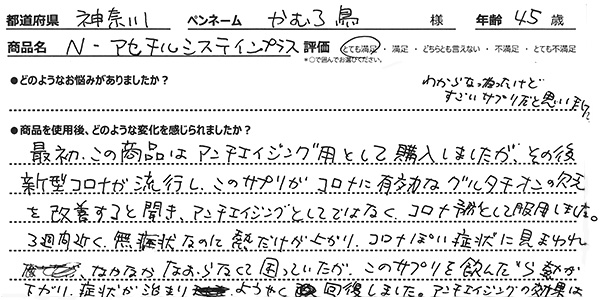 都道府県 神奈川 ペンネーム かむろ鳥 様 年齢 45 歳
商品名 N-アセチルシステインプラス 評価 とても満足・満足・どちらとも言えない・不満足・とても不満足
*〇で囲んでお選びください。
●どのようなお悩みがありましたか？
わからなかったけど
すごいサプリだと思いました
●商品を使用後、どのような変化を感じられましたか？
最初、この商品はアンチエイジング用として購入しましたが、その後
新型コロナが流行し、このサプリがコロナに有効なグルタチオンの欠乏
を改善すると聞き、アンチエイジングとしてではなくコロナ予防として服用しました。
3週間近く無症状なのに熱だけが上がり、コロナぽい症状に見まわれ
なかなかなおらなくて困っていたが、このサプリを飲んだら熱が
下がり、症状が治まり ようやく回復しました。アンチエイジングの効果は